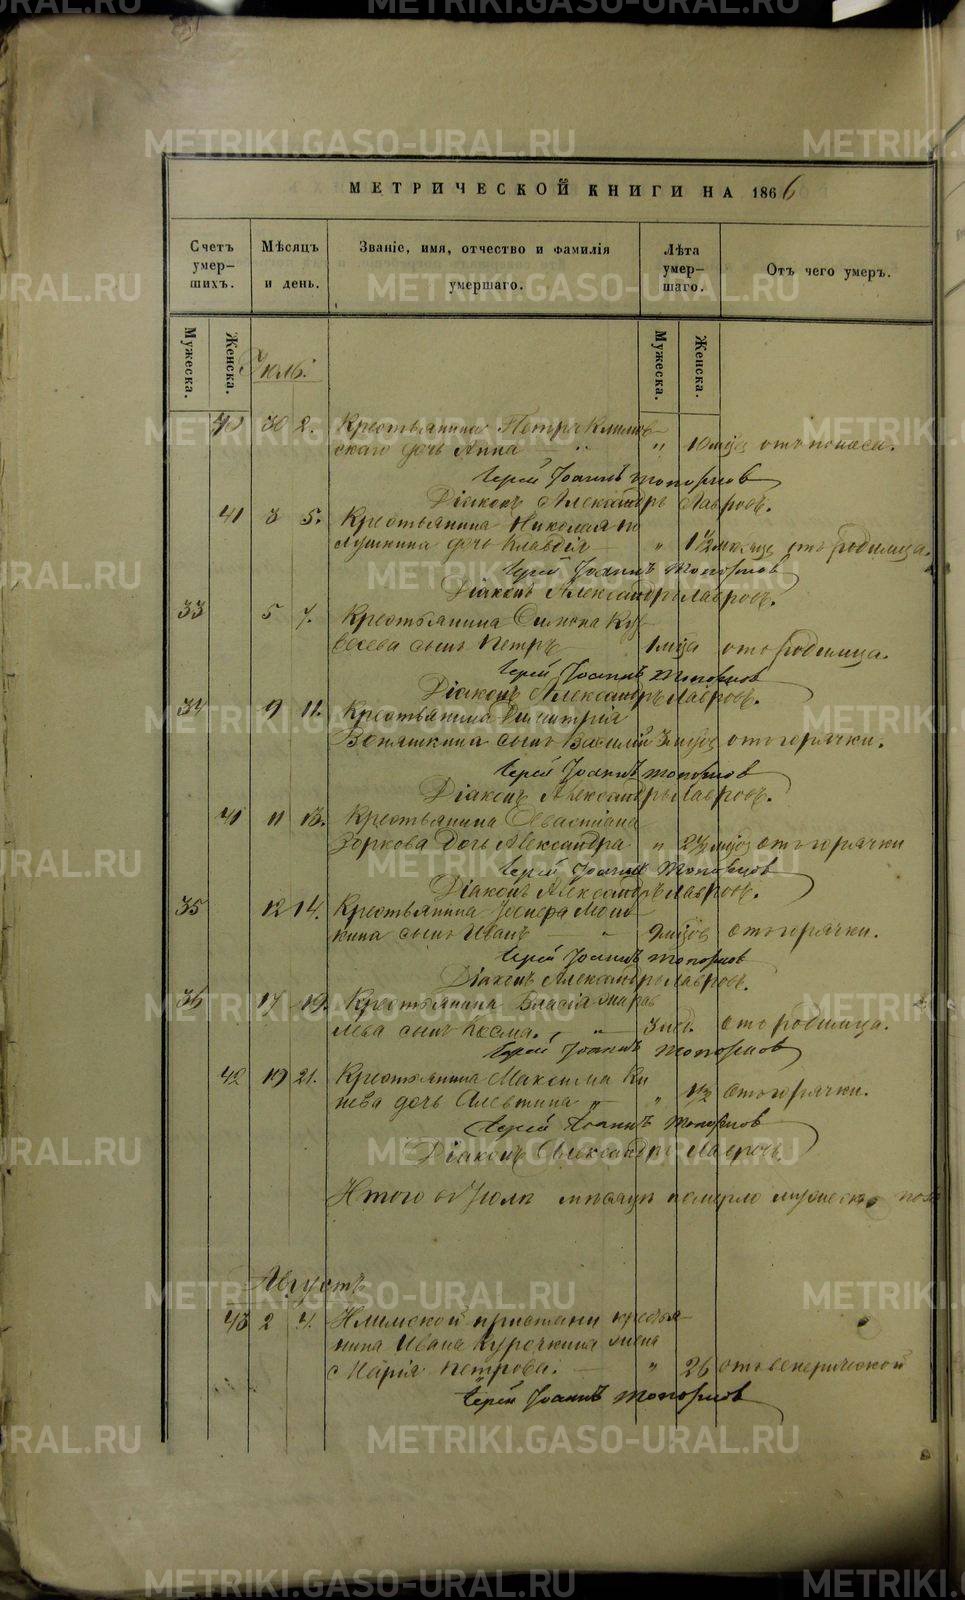 METRIKI.GASO-URAL.RU
МЕТРИЧЕСКОЙ КНИГИ НА 1866
Счетъ умер-шихъ.
Мѣсяцъ и день.
Званіе, имя, отчество и фамилія умершаго.
Лѣта умер-шаго.
Отъ чего умеръ.
Мужеска.
Женска.
Мужеска.
Женска.
Іюль.
40 30 2. Крестьянина Петра
скаго дочь Анна „ „ 10 отъ поноса.
Іерей Іоаннъ Топорковъ
Діаконъ Александръ Лавровъ.
41 3 5. Крестьянина Николая
лушкина дочь Клавдія „ 1½ отъ родимца.
Іерей Іоаннъ Топорковъ
Діаконъ Александръ Лавровъ.
33 5 7. Крестьянина Симона
сынъ Петръ 1 мца отъ родимца.
Іерей Іоаннъ Топорковъ
Діаконъ Александръ Лавровъ.
34 9 11. Крестьянина Димитрія
Воняшкина сынъ Василій 3 отъ горячки.
Іерей Іоаннъ Топорковъ
Діаконъ Александръ Лавровъ.
41 11 13. Крестьянина Севастіана
Зоркова дочь Александра „ отъ горячки
Іерей Іоаннъ Топорковъ
Діаконъ Александръ Лавровъ.
35 12 14. Крестьянина
кина сынъ Иванъ „ отъ горячки.
Іерей Іоаннъ Топорковъ
Діаконъ Александръ Лавровъ.
36 17 19. Крестьянина Власія
лева сынъ Косма. „ 3 отъ родимца.
Іерей Іоаннъ Топорковъ
42 19 21. Крестьянина Максима Ки
нева дочь Алевтина „ „ 1½ отъ горячки.
Іерей Іоаннъ Топорковъ
Діаконъ Александръ Лавровъ.
Итого въ Іюлѣ мѣсяцѣ померло мужеска пола
Августъ
43 2 4. Илимской пристани крестья-
нина Ивана Курочкина жена
Марія Петрова. „ 26 отъ венерической
Іерей Іоаннъ Топорковъ